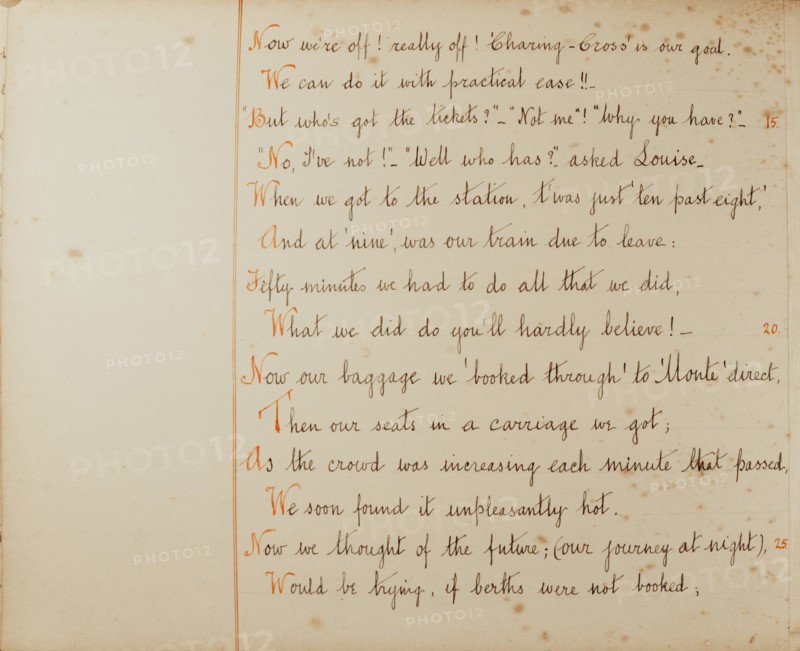 Now we're off! really off! 'Charing-Cross' is our goal.
We can do it with practical ease!!_
"But who's got the tickets?"_ "Not me"! "Why you have?"_ 15.
"No, I've not!"_ "Well who has?" asked Louise_
When we got to the station, t'was just 'ten past eight,'
And at 'nine', was our train due to leave:
Fifty minutes we had to do all that we did,
What we did do you'll hardly believe!_ 20.
Now our baggage we 'booked through' to 'Monte' direct,
Then our seats in a carriage we got;
As the crowd was increasing each minute that passed,
We soon found it unpleasantly hot.
Now we thought of the future; (our journey at night), 25.
Would be trying, if berths were not booked;